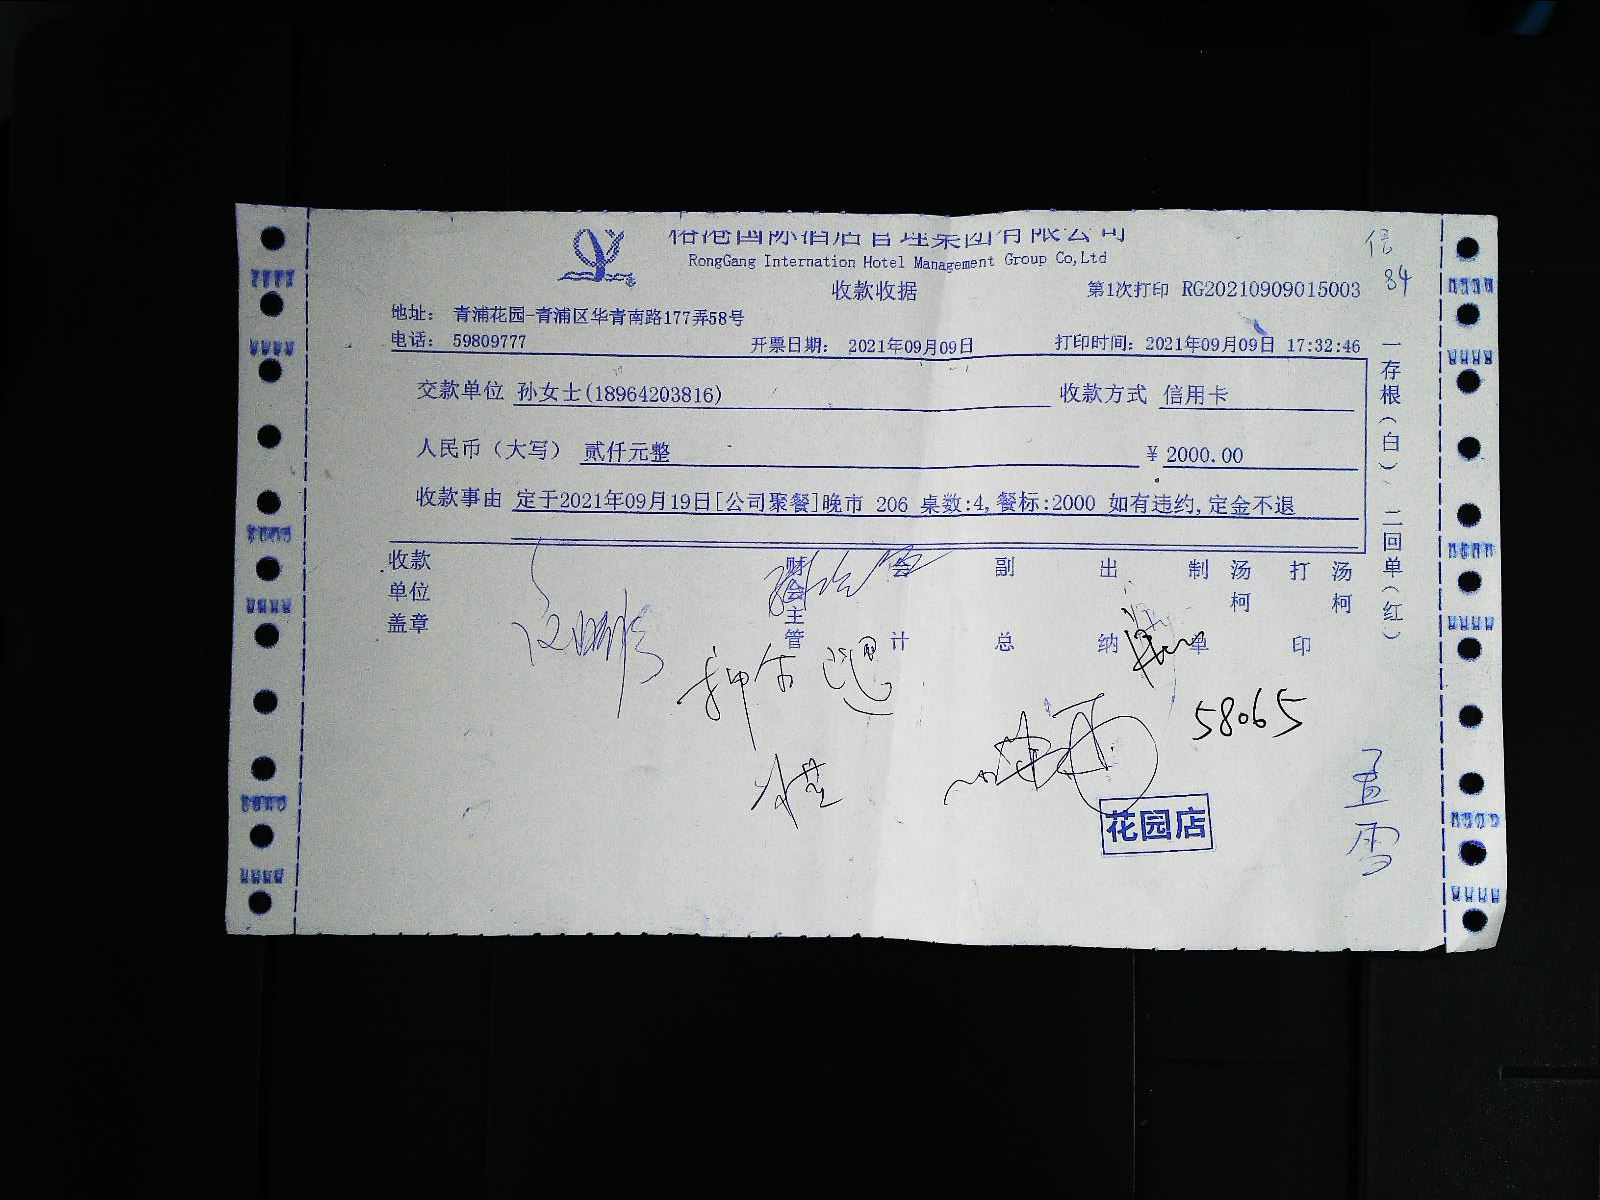 榕港国际酒店管理集团有限公司
RongGang Internation Hotel Management Group Co,Ltd
收款收据
第1次打印 RG20210909015003
信
84
地址: 青浦花园-青浦区华青南路177弄58号
电话: 59809777 开票日期: 2021年09月09日 打印时间: 2021年09月09日 17:32:46
交款单位 孙女士(18964203816) 收款方式 信用卡
人民币(大写) 贰仟元整 ¥ 2000.00
收款事由 定于2021年09月19日[公司聚餐]晚市 206 桌数:4,餐标:2000 如有违约,定金不退
收款单位盖章 财会主管 会计 副总 出纳 制单 汤柯 打印 汤柯
一存根(白)、二回单(红)
58065
花园店
孟雪